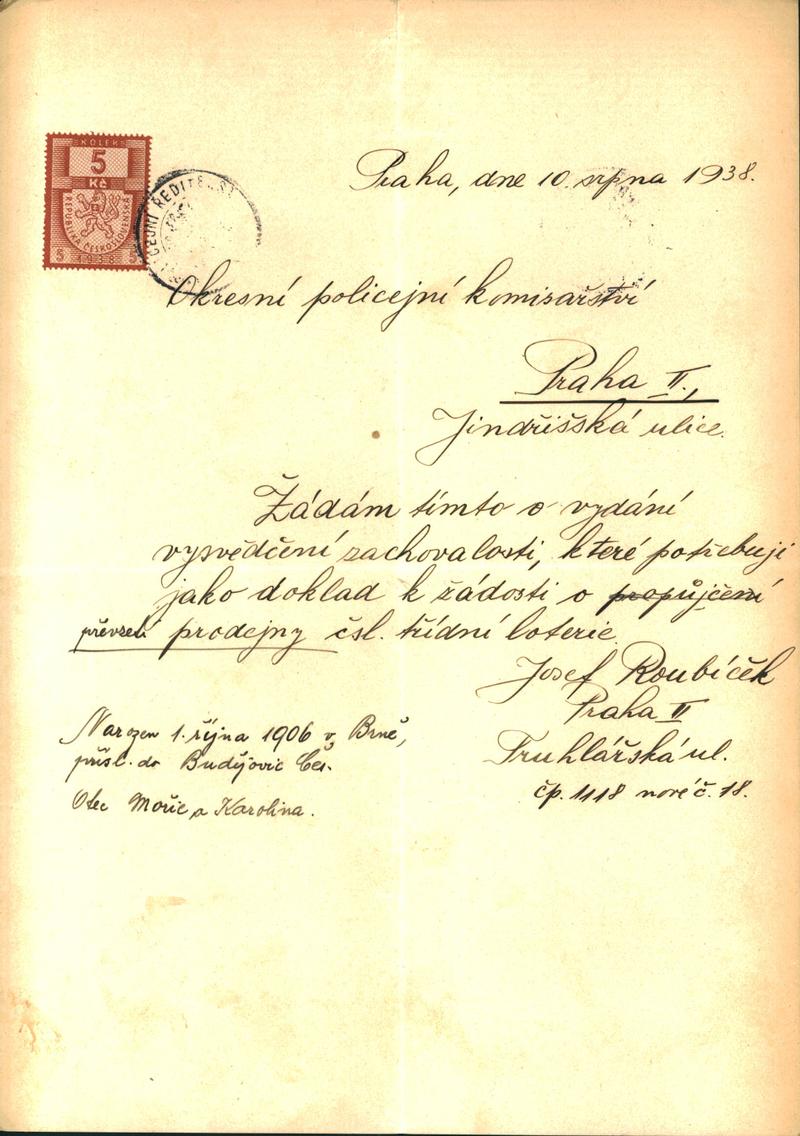 KOLEK
5
Kč
REPUBLIKA ČESKOSLOVENSKÁ
5 1938 5
CEJNÍ ŘEDITELST
Praha, dne 10. srpna 1938.
Okresní policejní komisařství
Praha II.,
Jindřišská ulice.
Žádám tímto o vydání
vysvědčení zachovalosti, které potřebuji
jako doklad k žádosti o propůjčení
převzetí prodejny čsl. třídní loterie.
Josef Roubíček
Praha II
Truhlářská ul.
čp. 1118 nové č. 18.
Narozen 1. října 1906 v Brně,
přísl. do Budějovic Čes.
Otec Mořic a Karolina.